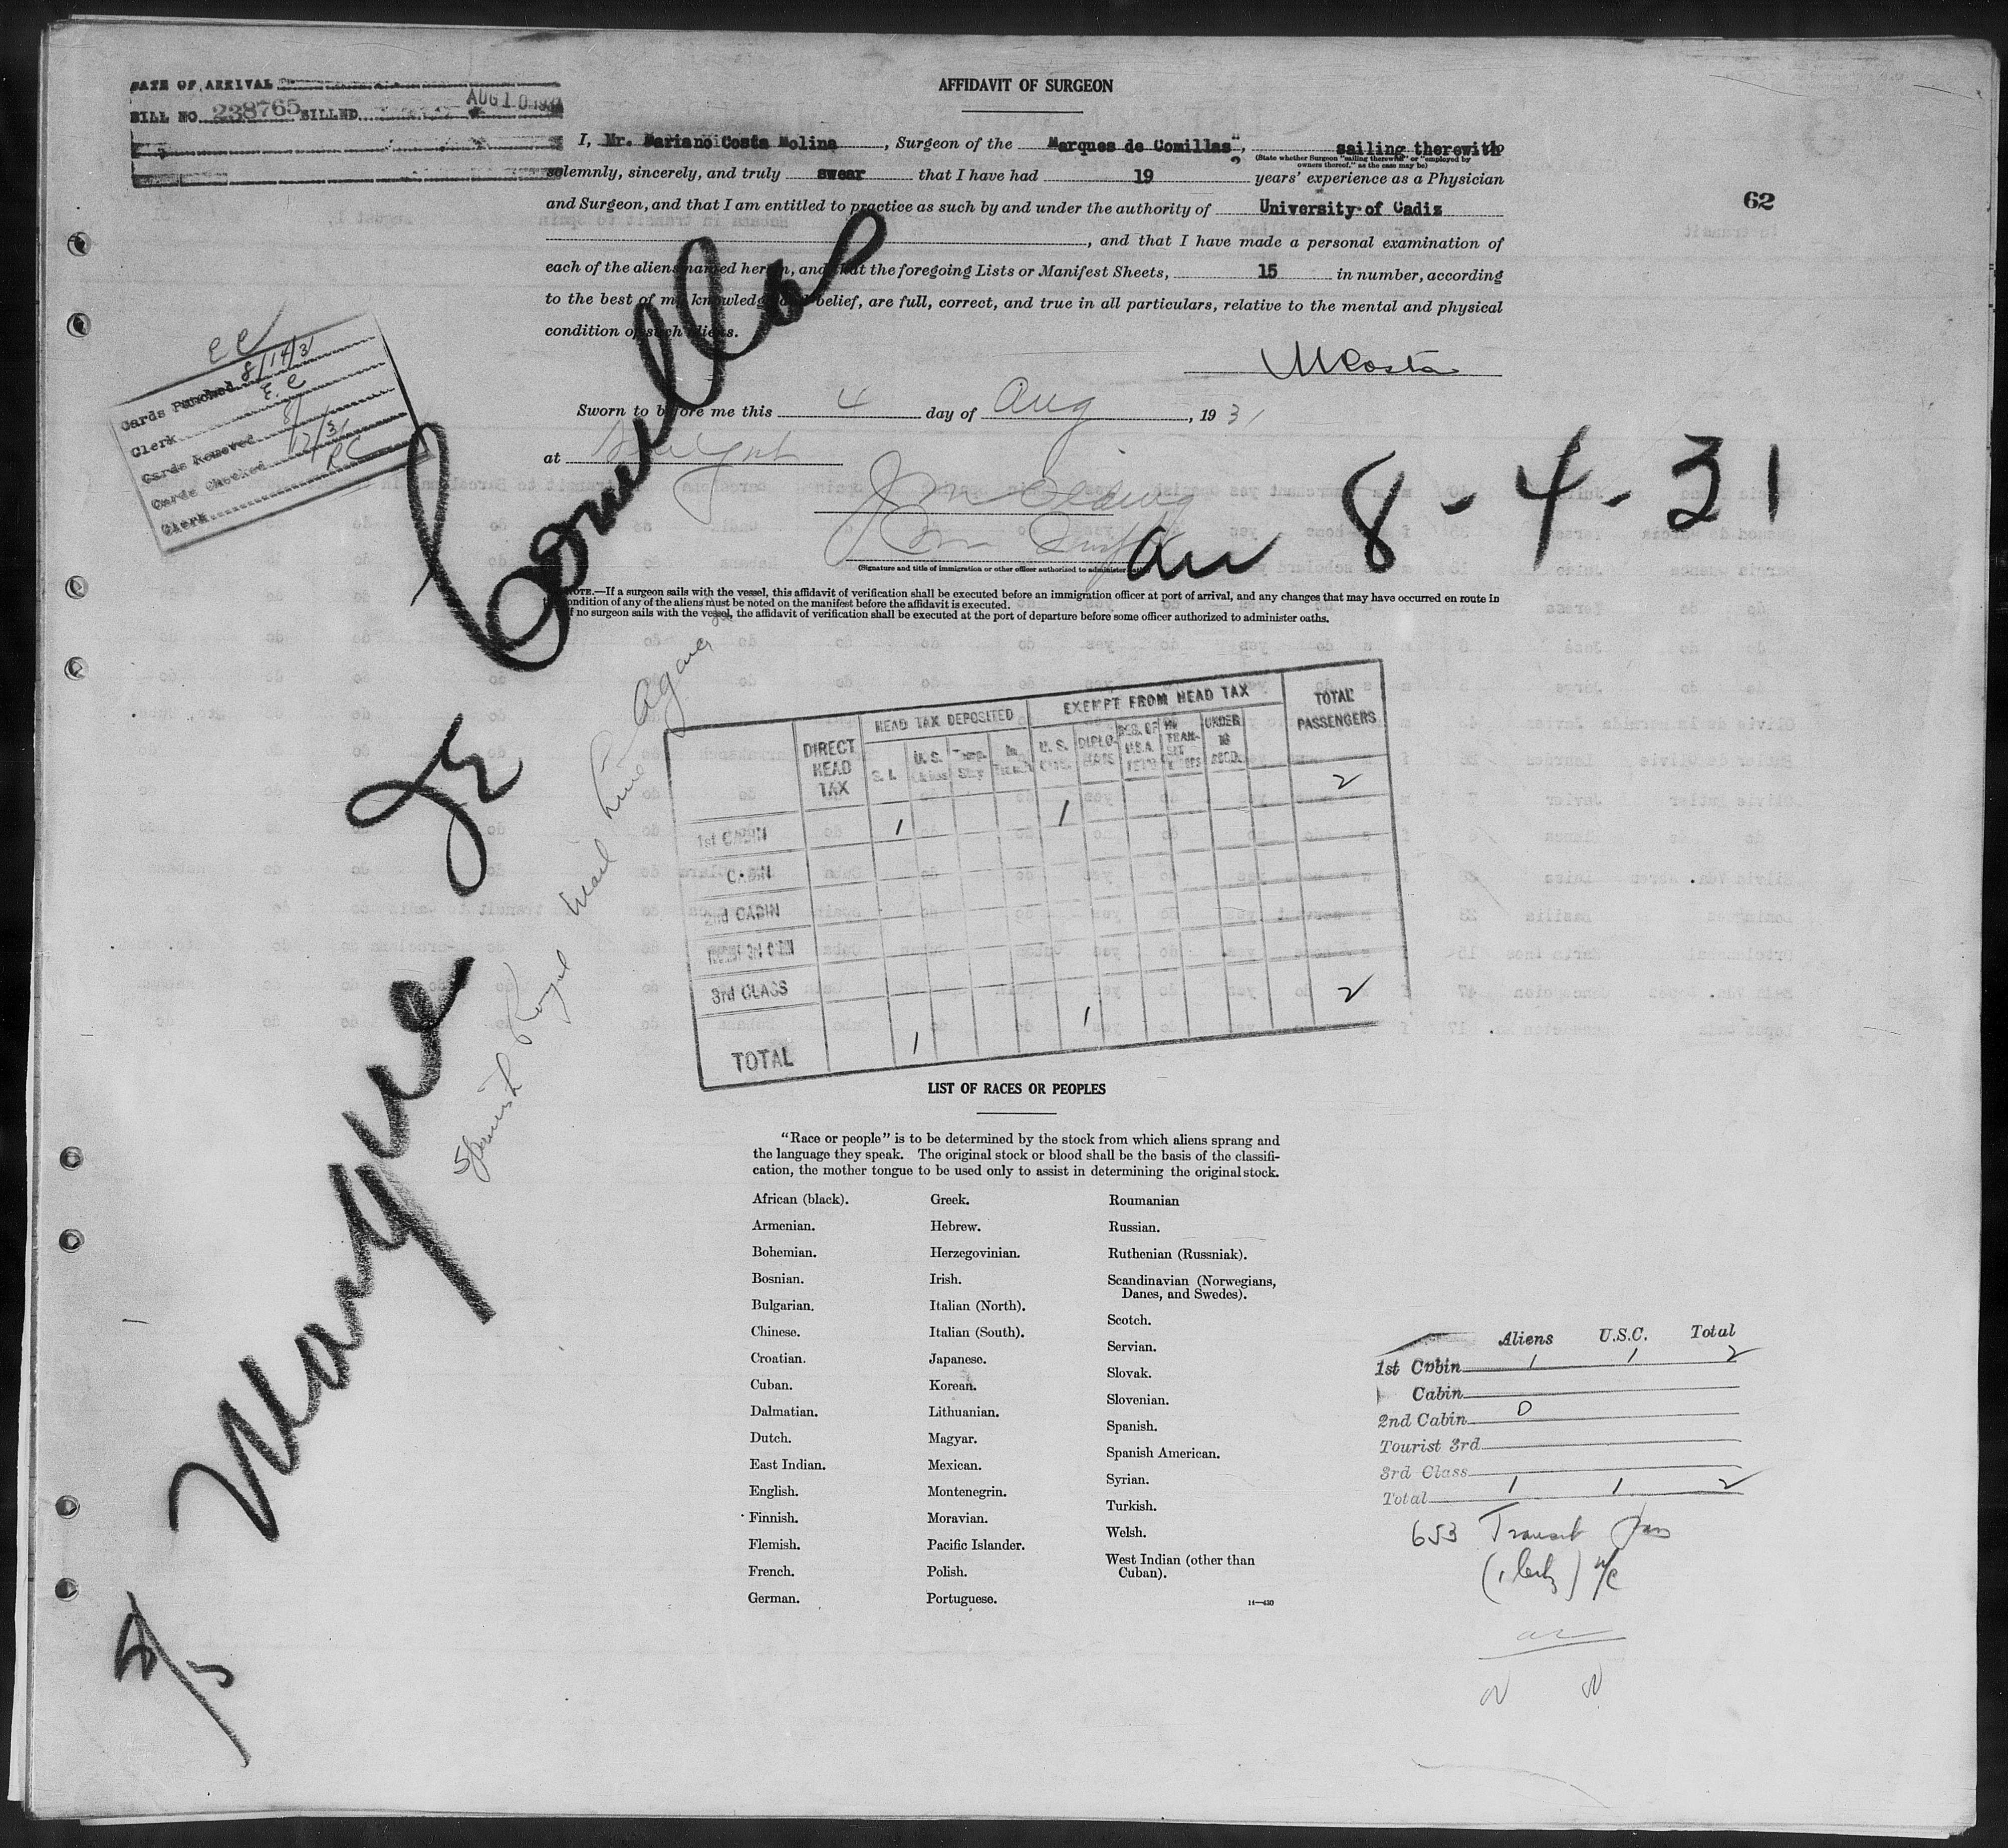 DATE OF ARRIVAL
BILL NO 238765 BILLED AUG 10 1931
AFFIDAVIT OF SURGEON
I, Mr. Mariano Costa Molina, Surgeon of the "Marques de Comillas", sailing therewith
(State whether Surgeon "sailing therewith" or "employed by
owners thereof," as the case may be)
solemnly, sincerely, and truly swear that I have had 19 years' experience as a Physician
and Surgeon, and that I am entitled to practice as such by and under the authority of University of Cadiz
62
, and that I have made a personal examination of
each of the aliens named herein, and that the foregoing Lists or Manifest Sheets, 15 in number, according
to the best of my knowledge and belief, are full, correct, and true in all particulars, relative to the mental and physical
condition of such aliens.
MCosta
Sworn to before me this 4 day of Aug, 1931
at
(Signature and title of immigration or other officer authorized to administer oaths)
EC
Cards Punched 8/14/31
Clerk E.C
Cards Removed 8/
Cards Checked 12/31
Clerk RC
Marques de Comillas
arr 8-4-31
NOTE.—If a surgeon sails with the vessel, this affidavit of verification shall be executed before an immigration officer at port of arrival, and any changes that may have occurred en route in
the condition of any of the aliens must be noted on the manifest before the affidavit is executed.
If no surgeon sails with the vessel, the affidavit of verification shall be executed at the port of departure before some officer authorized to administer oaths.
Spanish Royal Mail Line Agency
HEAD TAX DEPOSITED EXEMPT FROM HEAD TAX
DIRECT HEAD TAX S. I. U. S. Temp. Stay In Transit U. S. CITS. DIPLOMATS RES. OF U.S.A. IN TRANSIT UNDER 16 ACCD. TOTAL PASSENGERS
1st CABIN 1 1 2
CABIN
2nd CABIN
TOURIST 3rd CABIN
3rd CLASS
TOTAL 1 1 2
LIST OF RACES OR PEOPLES
"Race or people" is to be determined by the stock from which aliens sprang and
the language they speak. The original stock or blood shall be the basis of the classifi-
cation, the mother tongue to be used only to assist in determining the original stock.
African (black).
Armenian.
Bohemian.
Bosnian.
Bulgarian.
Chinese.
Croatian.
Cuban.
Dalmatian.
Dutch.
East Indian.
English.
Finnish.
Flemish.
French.
German.
Greek.
Hebrew.
Herzegovinian.
Irish.
Italian (North).
Italian (South).
Japanese.
Korean.
Lithuanian.
Magyar.
Mexican.
Montenegrin.
Moravian.
Pacific Islander.
Polish.
Portuguese.
Roumanian
Russian.
Ruthenian (Russniak).
Scandinavian (Norwegians,
Danes, and Swedes).
Scotch.
Servian.
Slovak.
Slovenian.
Spanish.
Spanish American.
Syrian.
Turkish.
Welsh.
West Indian (other than
Cuban).
14—430
Aliens U.S.C. Total
1st Cabin 1 1 2
Cabin
2nd Cabin 0
Tourist 3rd
3rd Class
Total 1 1 2
653 Transit